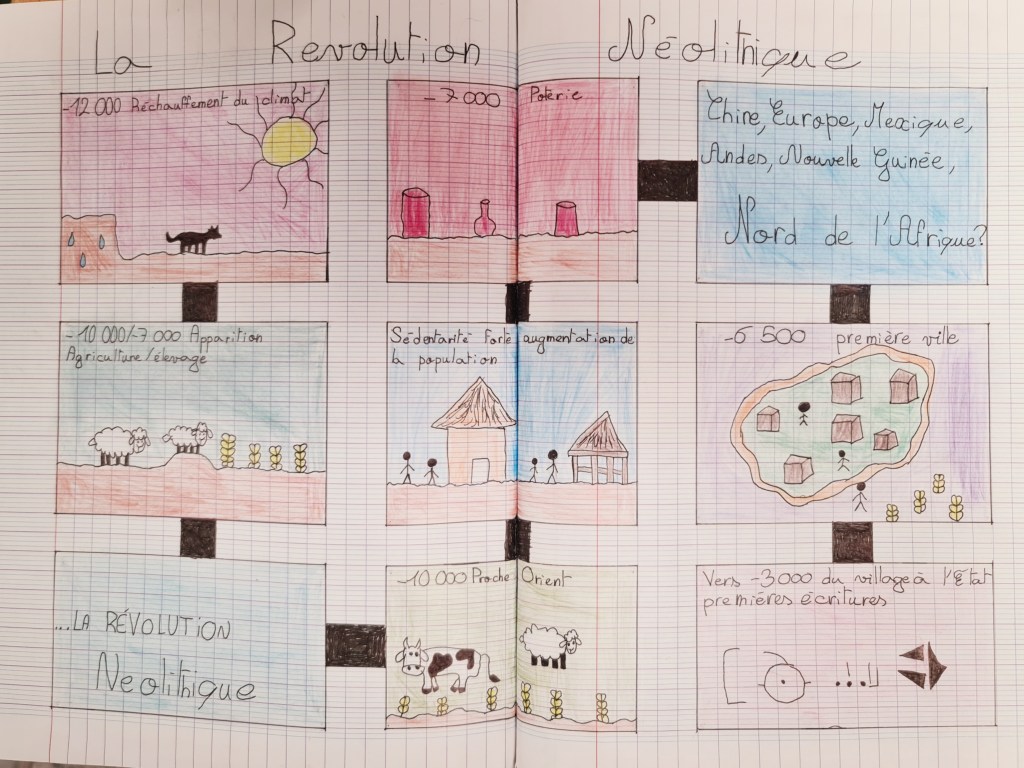 La Revolution Néolithique
-12 000 Réchauffement du climat
-10 000/-7 000 Apparition
Agriculture/élevage
...LA RÉVOLUTION
Neolithique
-10 000 Proche Orient
Sédentarité Forte augmentation de
la population
-7 000 Poterie
Chine, Europe, Mexique,
Andes, Nouvelle Guinée,
Nord de l'Afrique?
-6 500 première ville
Vers -3000 du village à l'État
premières écritures